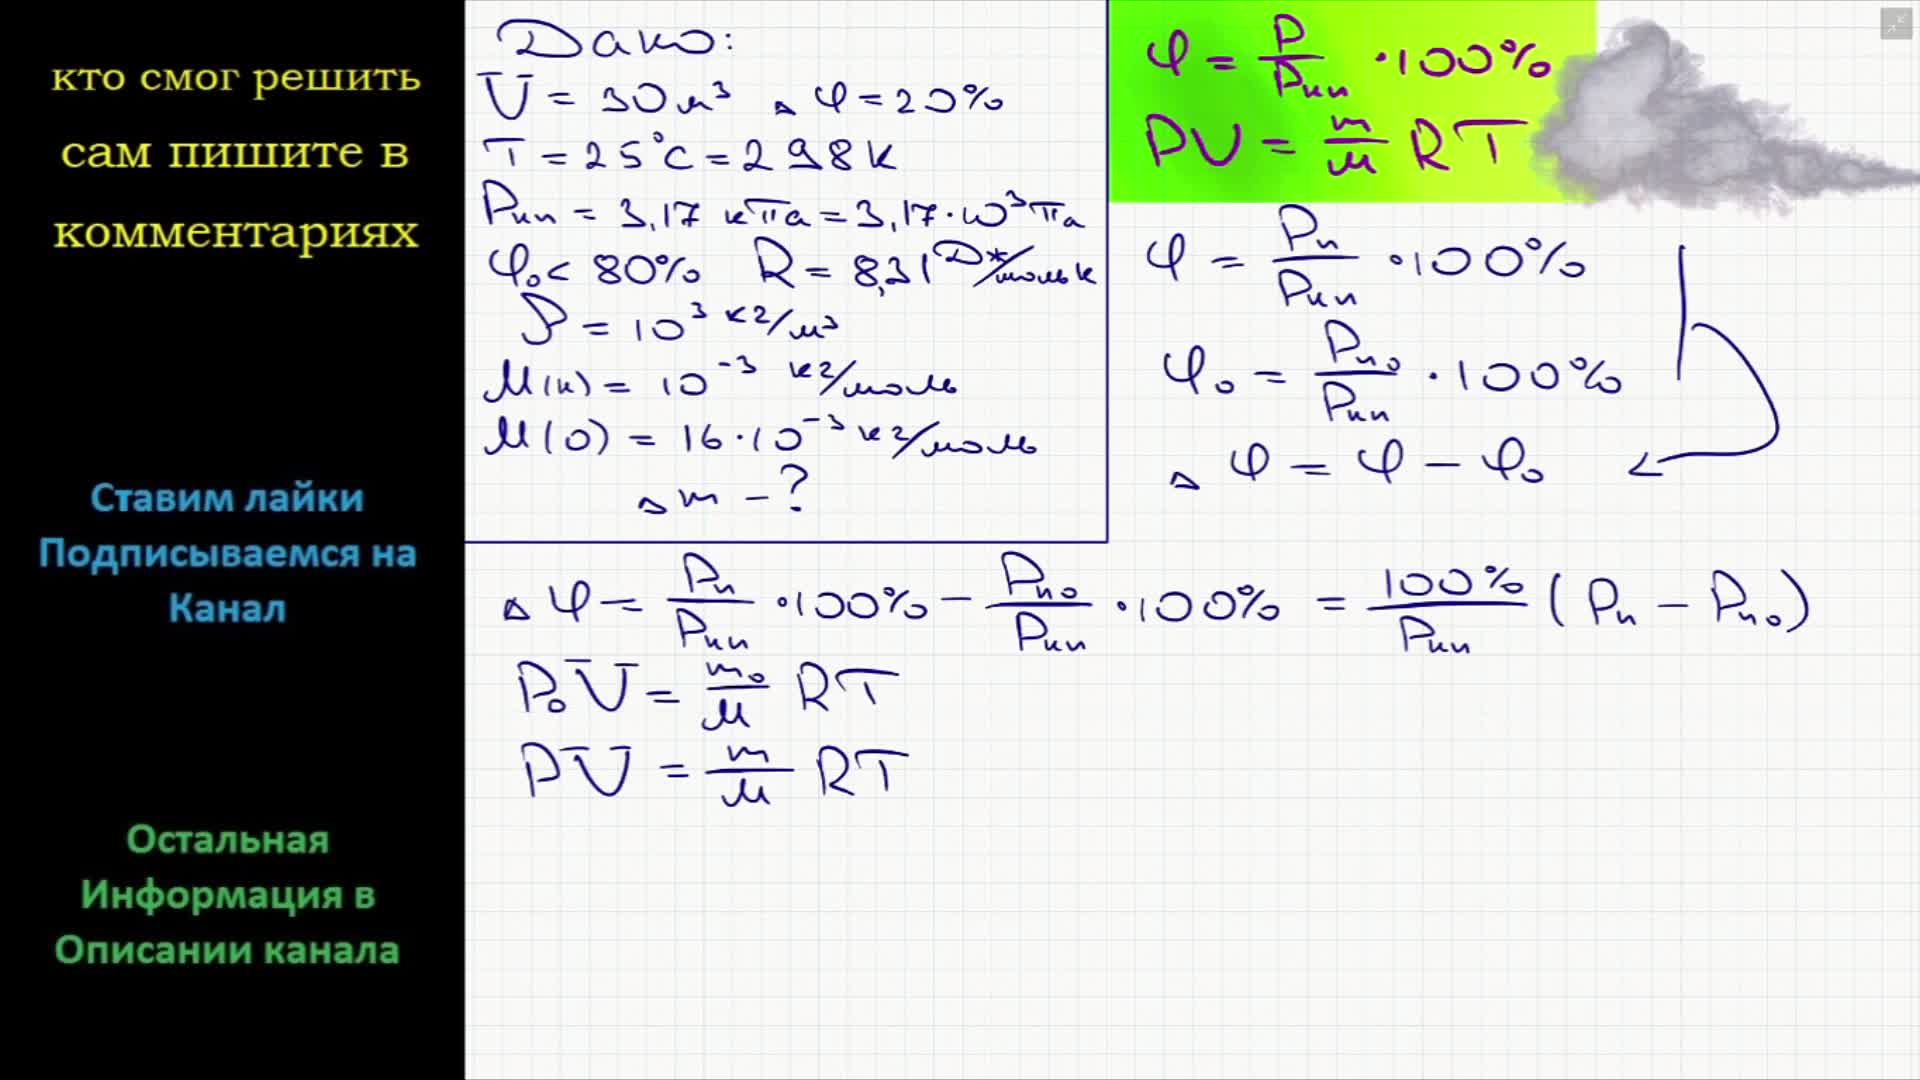 кто смог решить
сам пишите в
комментариях
Ставим лайки
Подписываемся на
Канал
Остальная
Информация в
Описании канала
Дано:
V = 30 м³ △φ = 20%
T = 25°C = 298 K
Pнп = 3,17 кПа = 3,17·10³ Па
φ₀ < 80% R = 8,31 Дж/моль к
ρ = 10³ кг/м³
M(н) = 10⁻³ кг/моль
M(0) = 16·10⁻³ кг/моль
△m - ?
φ = P/Pнп ·100%
PV = m/M RT
φ = Pп/Pнп ·100%
φ₀ = Pп₀/Pнп ·100%
△φ = φ – φ₀
△φ = Pп/Pнп ·100% – Pп₀/Pнп ·100% = 100%/Pнп (Pп – Pп₀)
P₀V = m₀/M RT
PV = m/M RT